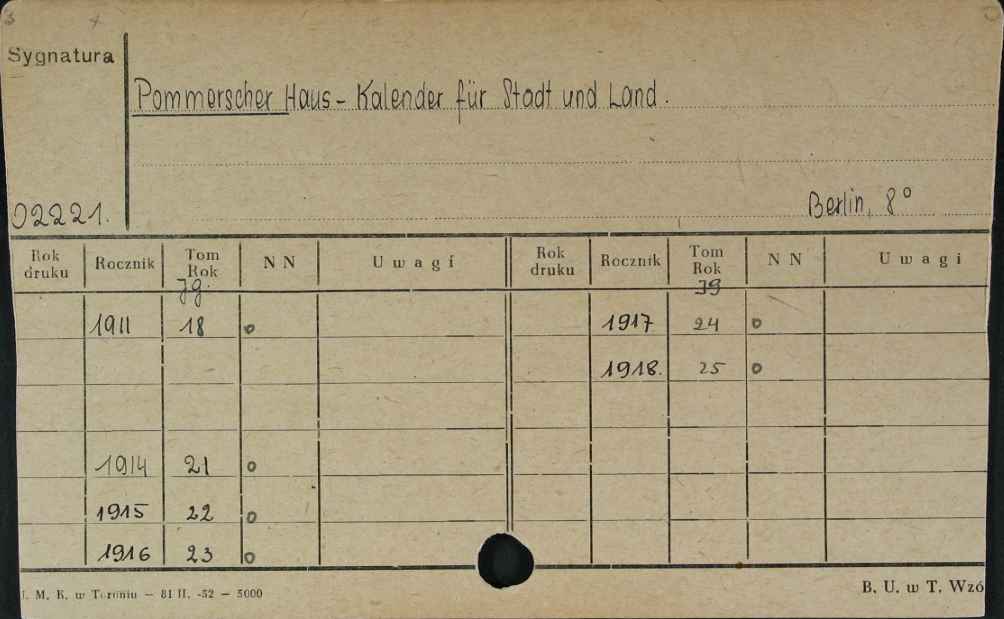 Sygnatura
Pommerscher Haus-Kalender für Stadt und Land.
02221.
Berlin, 8°
Rok druku Rocznik Tom Rok N N Uwagi Rok druku Rocznik Tom Rok N N Uwagi
Jg. Jg
1911 18 o 1917 24 o
1918. 25 o
1914 21 o
1915 22 o
1916 23 o
M. K. w Toruniu — 81 II. -52 — 5000
B. U. w T. Wzó